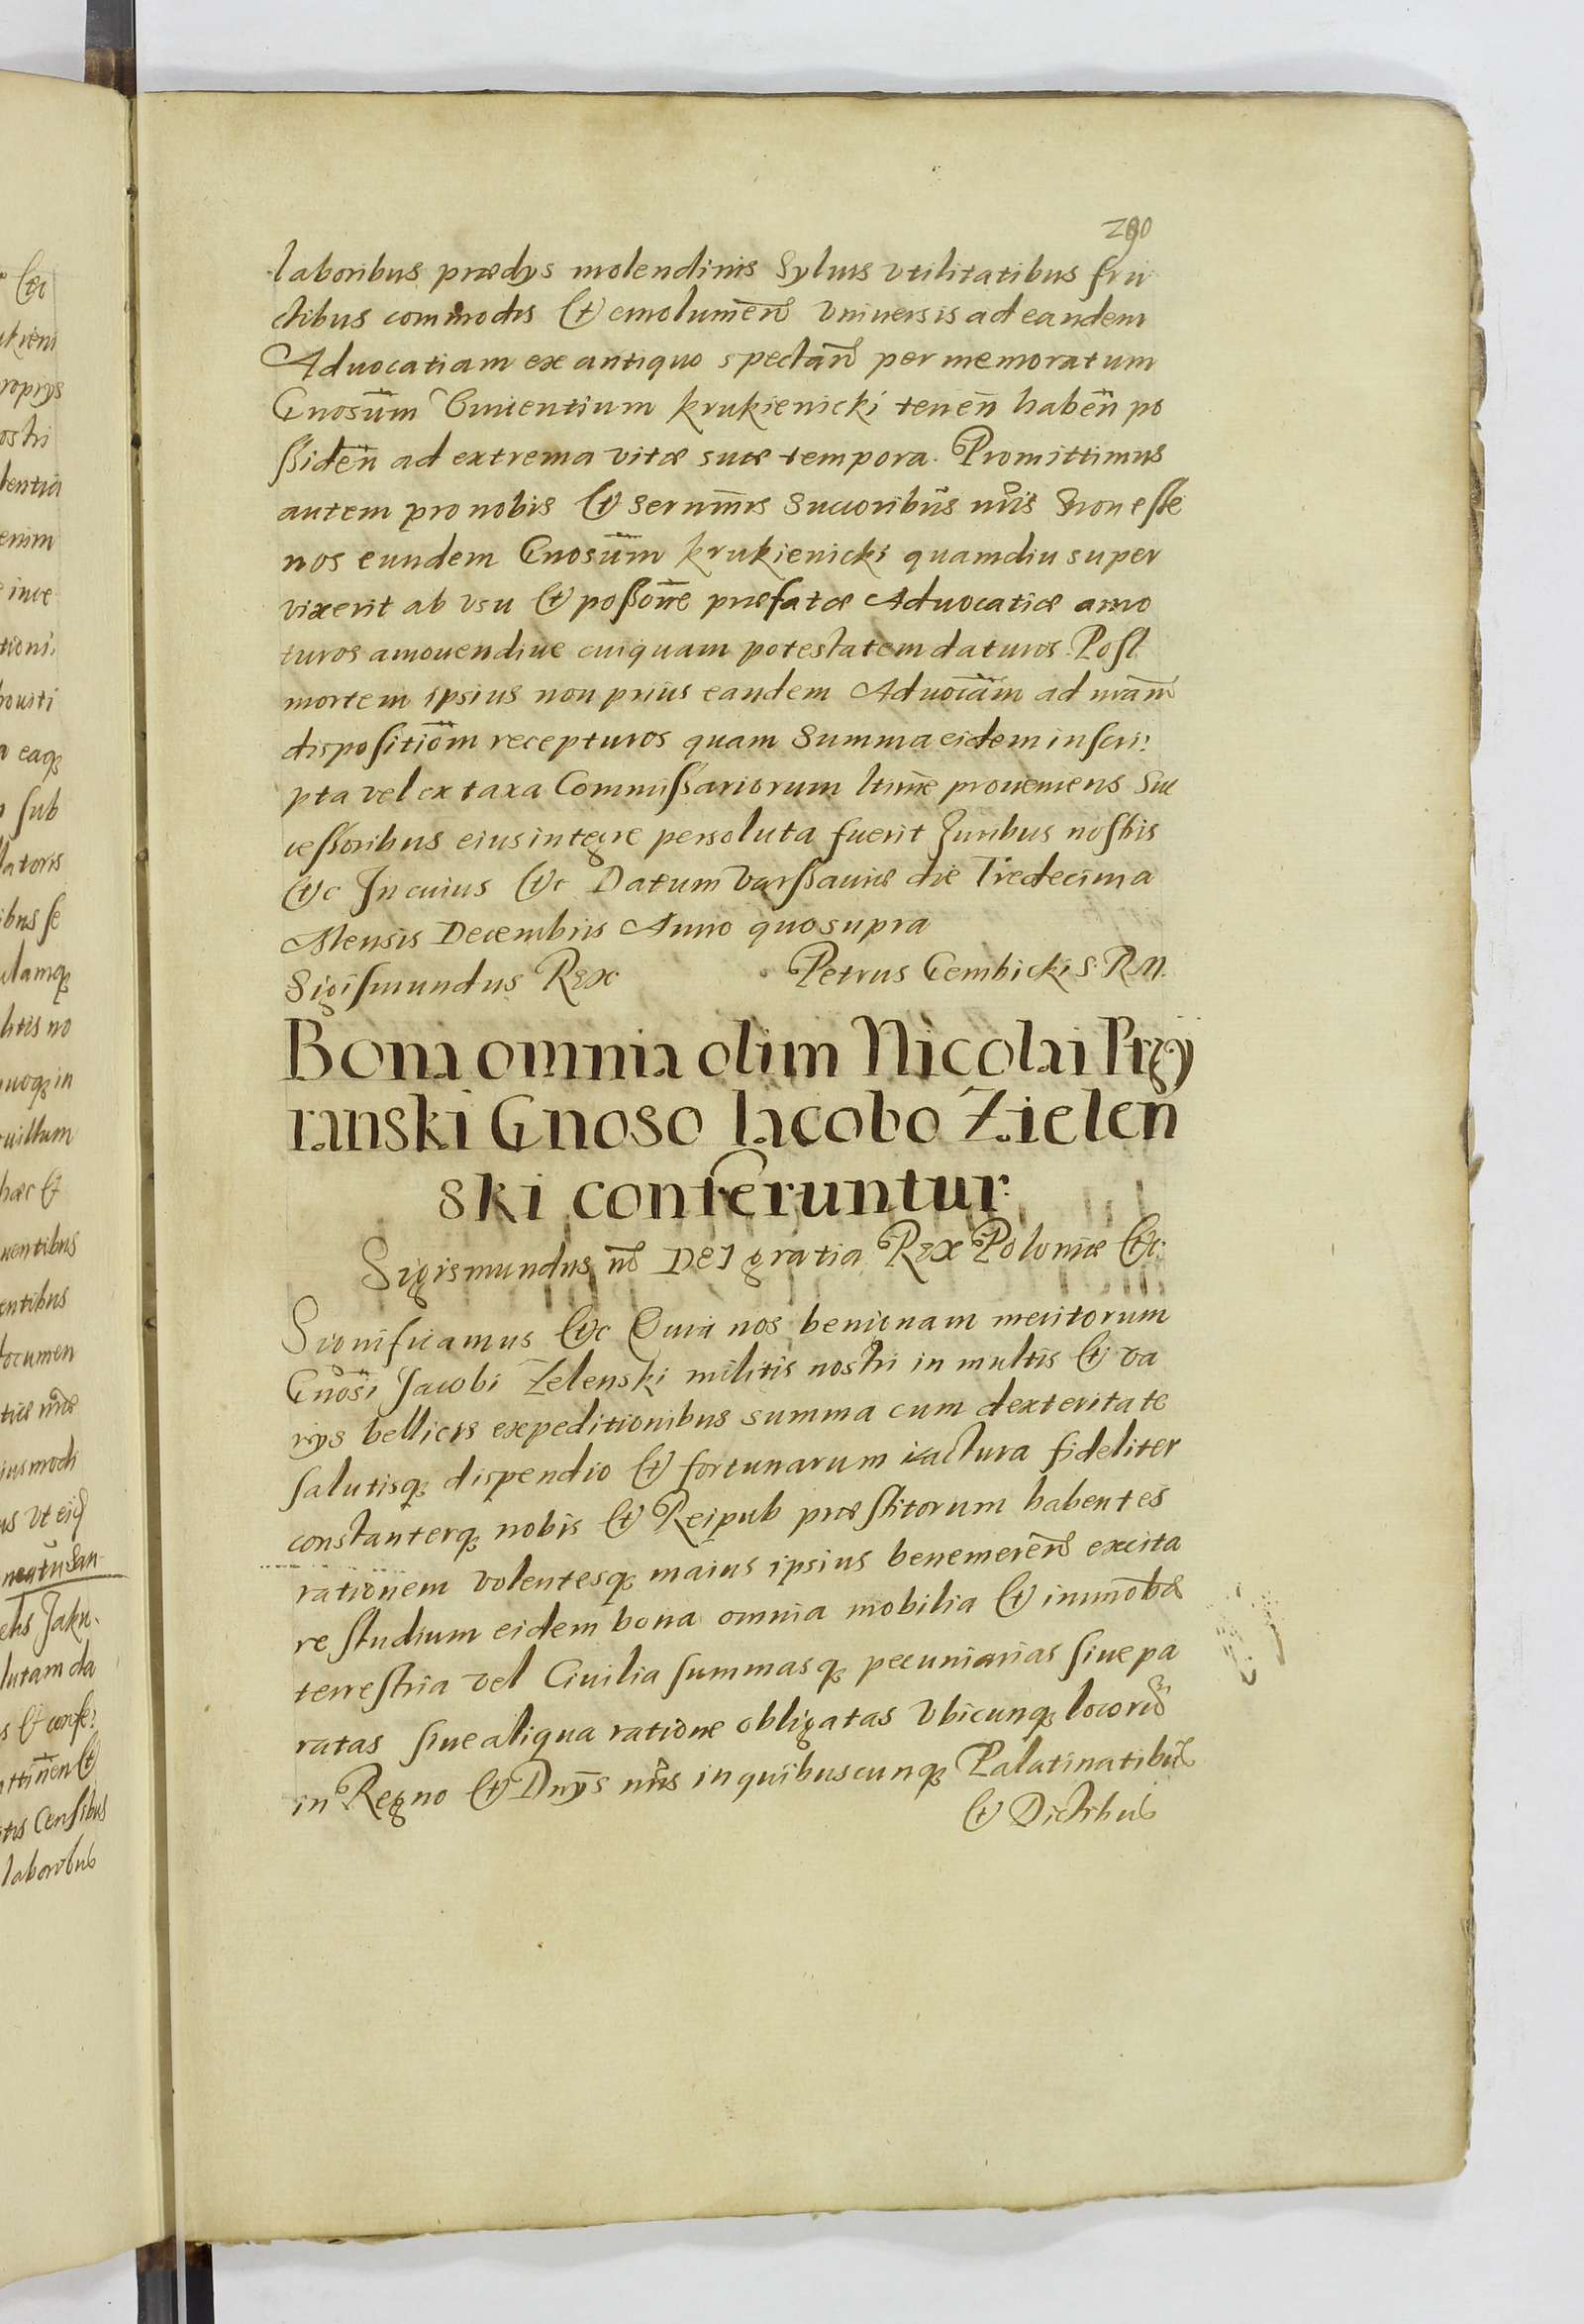 290
laboribus prædys molendinis Syluis vtilitatibus fru
ctibus commodis et emolumen̄ vniuersis ad eandem
Aduocatiam ex antiquo spectan̄ per memoratum
Gnosum̄ Vincentium Krukienicki tenen̄ haben̄ po
ssiden̄ ad extrema vitæ suæ tempora. Promittimus
autem pro nobis et Sernm̄is Succoribus nr̄is Non esse
nos eundem Gnosum̄ Krukienicki quamdiu super
vixerit ab vsu et possonn̄e præfatæ Aduocatiæ amo
turos amouendiue cuiquam potestatem daturos. Post
mortem ipsius non prius eandem Aduocam̄ ad nram̄
dispositiom̄ recepturos quam Summa eidem inscri
pta vel ex taxa Commissariorum ltime proueniens Suc
cessoribus eius integre persoluta fuerit Juribus nostris
etc In cuius etc Datum Varssauiæ die Tredecima
Mensis Decembris Anno quo supra
Sigismundus Rex Petrus Gembicki S. R. M.
Bona omnia olim Nicolai Przy
ranski Gnoso Iacobo Zielen
ski conferuntur.
Sigismundus 3us DEI gratia Rex Poloniæ etc.
Significamus etc Quia nos benignam meritorum
Gnosi Jacobi Zelenski militis nostri in multis et va
rijs bellicis expeditionibus summa cum dexteritate
salutisq; dispendio et fortunarum iactura fideliter
constanterq; nobis et Reipub præstitorum habentes
rationem volentesq; maius ipsius benemeren̄ excita
re studium eidem bona omnia mobilia et immobā
terrestria vel Ciuilia summasq; pecuniarias siue pa
ratas siue aliqua ratione obligatas vbicunq; locorū
in Regno et Dnȳs nr̄is in quibuscunq; Palatinatibus
et Dictibus